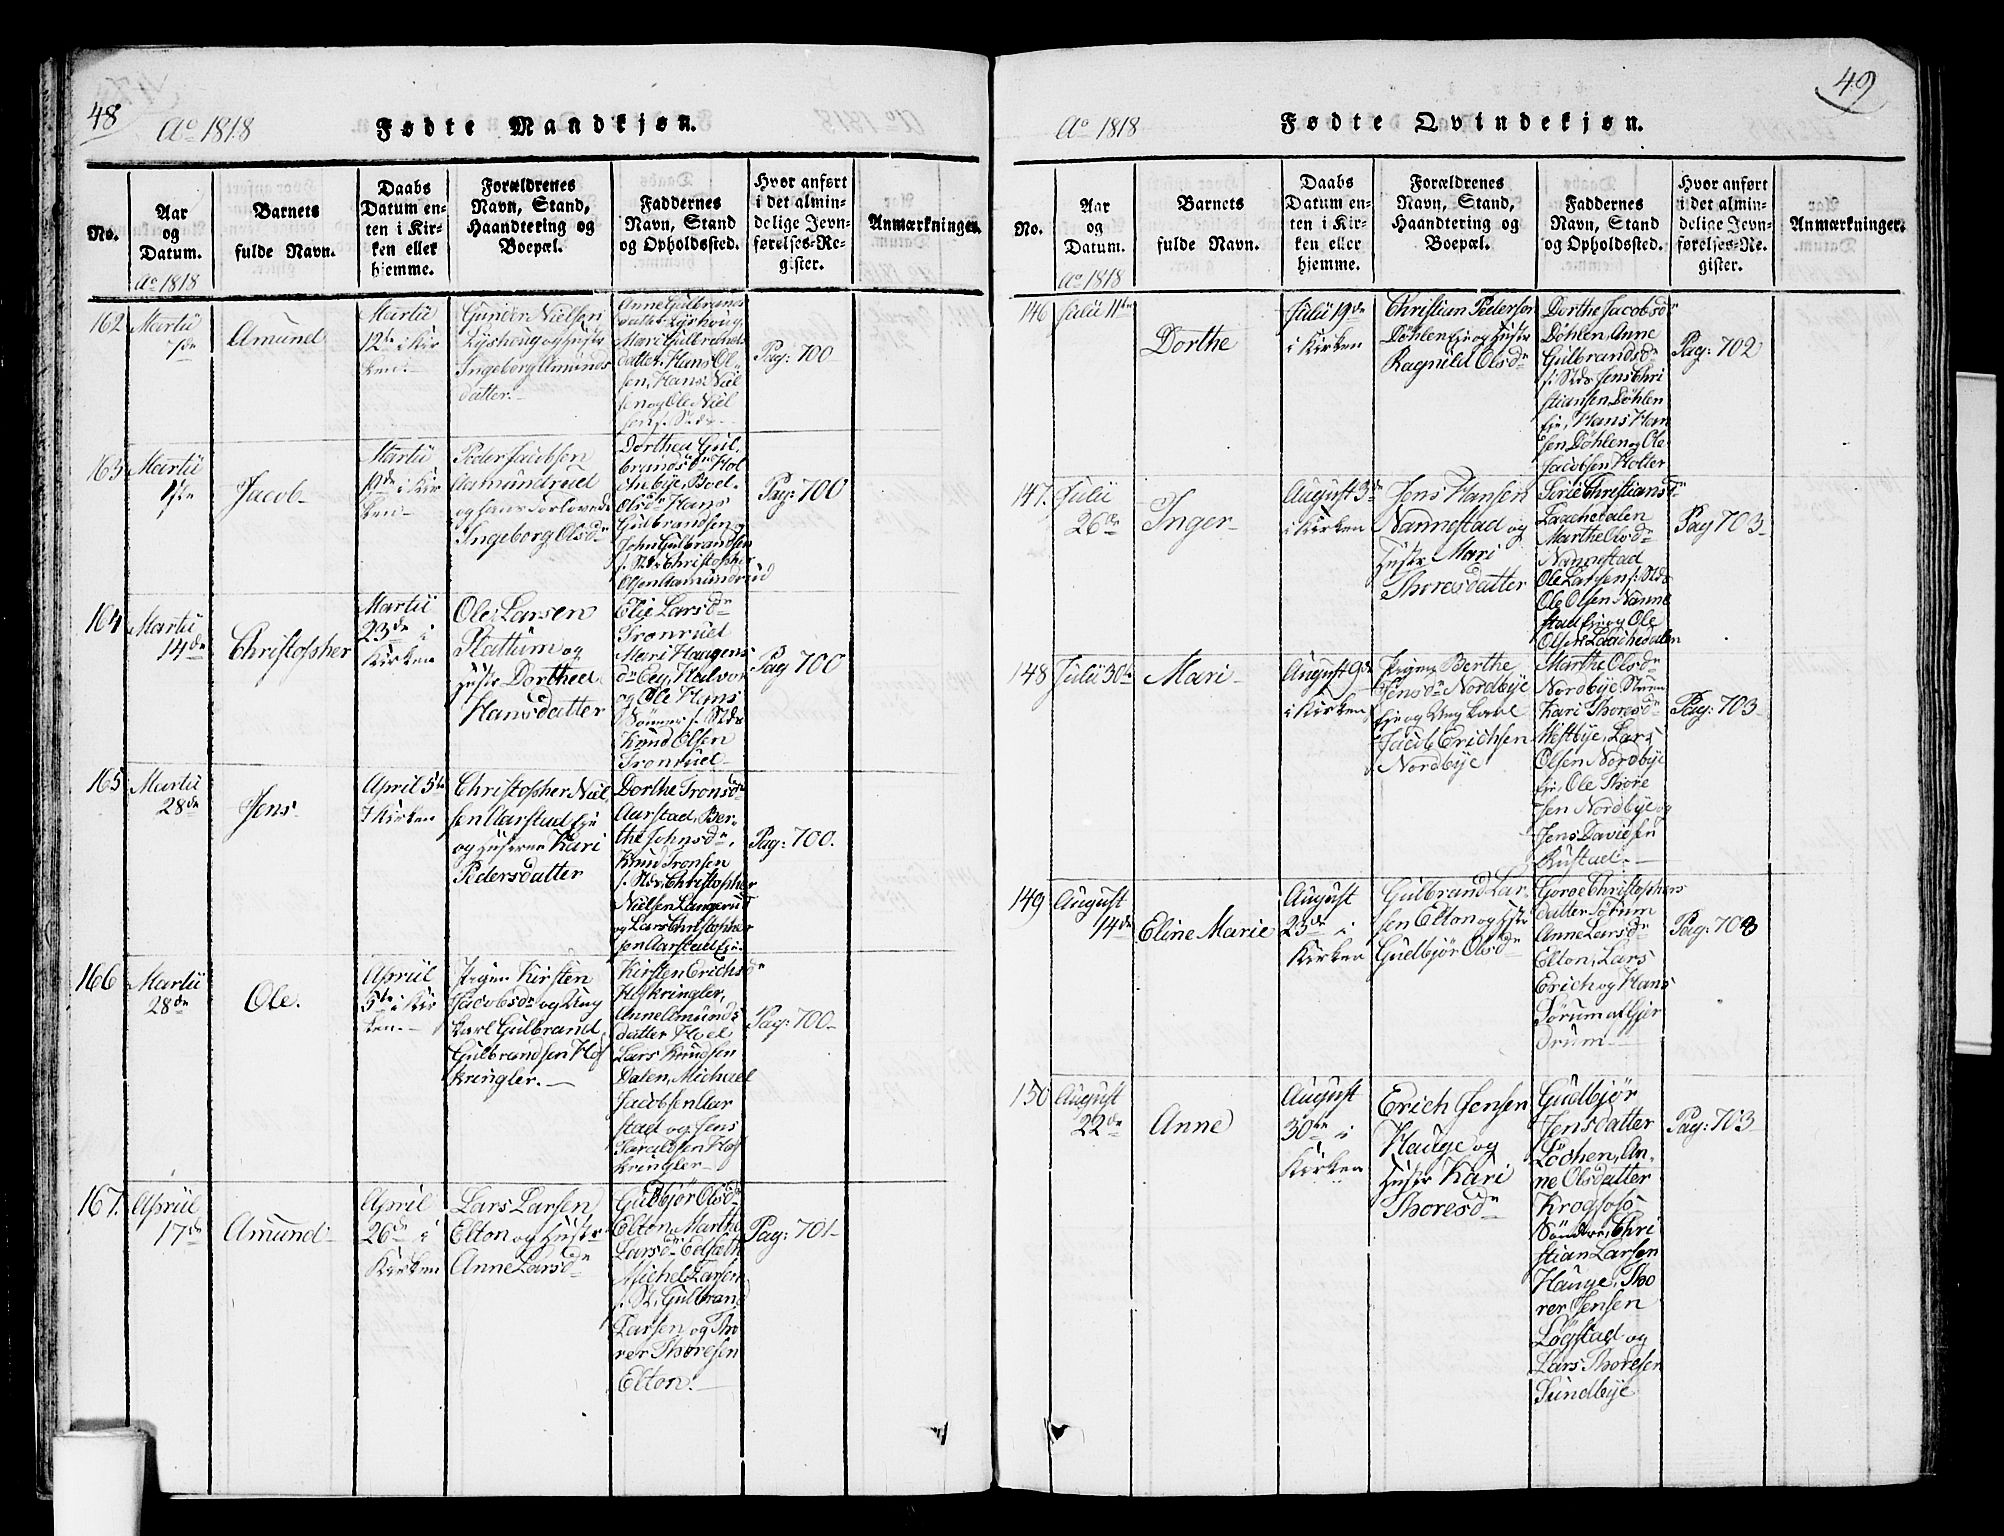 48
Aº 1818
Fødte Mandkjøn.
No.
Aar
og
Datum.
Barnets
fulde Navn.
Daabs
Datum en-
ten i Kir-
ken eller
hjemme.
Forældrenes
Navn, Stand,
Haandtering og
Boepæl.
Faddernes
Navn, Stand
og Opholdssted.
Hvor anført
i det almin-
delige Jevn-
førelses-Re-
gister.
Anmærkninger.
Aº 1818
162
Martii
7de
Amund
Martii
12te i Kir
ken.
Gunder Nielsen
Lyshoug og Hustr
Ingeborg Amunds
datter.
Anne Gulbrands
datter Lyshoug,
Mari Gulbrands
datter, Hans Ol-
sen, Hans Niel
sen og Ole Niel
sen s. Stds.
Pag: 700
163
Martii
Jacob
Martii
i Kir
ken
Peder Jacobsen
Aamundrud
og hans Forlovede
Ingeborg Olsdr
Dorthea Gul,
brandsdr Hol
chebye, Boel
Olsdr Hans
Gulbrandsen og
John Gulbrandsen
s. Stds Christopher
Olsen Aamundrud
Pag: 700
164
Martii
14de
Christopher
Martii
23de i
Kirken
Ole Larsen
Stattum og
Hustr Dorthea
Hansdatter
Elie Larsdr
Tronrud
Mari Haagens
dr Eey, Halvor
og Ole Hans
Sønner s. Stds
Knud Olsen
Tronrud
Pag 700
165
Martii
28de
Jens
April 5te
I Kirken
Christopher Niel
sen Aarstad Eje
og Hustrue Kari
Pedersdatter
Dorthe Tronsdr
Aarstad, Ber-
the Johnsdr,
Knud Tronsen
s. Stds, Christopher
Nielsen Langerud
og Lars Christopher
sen Aarstad Eje
Pag: 700.
166
Martii
28de
Ole.
Apriil
5te i Kir
ken.
Pigen Kirsten
Jacobsdr og Ung
karl Gulbrand
Gulbrandsen Høf
kringler.
Kirsten Erichsdr
Høfkringler,
Anne Amunds
datter Hoel
Lars Knudsen
Dalen, Michael
Jacobsen Aar
stad og Jens
Haraldsen Høf
kringler
Pag: 700
167.
Apriil
17de
Amund
April
26de i
Kirken
Lars Larsen
Elton og Hustr
Anne Larsdr
Gudbjør Olsdr
Elton, Marthe
Larsdr Edsæth
Michel Larsen
s. St, Gulbrand
Larsen og Tho
rer Thoresen
Elton.
Pag: 701
49
Aº 1818
Fødte Qvindekjøn.
No.
Aar
og
Datum.
Barnets
fulde Navn.
Daabs
Datum en-
ten i Kir-
ken eller
hjemme.
Forældrenes
Navn, Stand,
Haandtering og
Boepæl.
Faddernes
Navn, Stand
og Opholdssted.
Hvor anført
i det almin-
delige Jevn-
førelses-Re-
gister.
Anmærkninger.
Aº 1818
146
Julii 11te
Dorthe
Julii 19de
i Kirken
Christian Pedersen
Døhlen Eje og Hustr
Ragnild Olsdr
Dorthe Jacobsdr
Døhlen, Anne
Gulbrandsdr
s. Stds Jens Chri
stiansen Døhlen
Eje, Hans Han
sen Døhlen og Ole
Jacobsen Holter
Pag: 702
147.
Julii
26de
Inger
August 3de
i Kirken
Jens Hansen
Nannestad og
Hustr Mari
Thoresdatter
Sirie Christiansdr
Laachedalen
Marthe Olsdr
Nannestad
Ole Larsen s. Stds
Ole Olsen Nanne
stad Eje og Ole
Olsen Laachedalen
Pag 703
148
Julii 30te
Mari
August 9de
i Kirken
Pigen Berthe
Jensdr Nordbye
Eje og Ung karl
Jacob Erichsen
Nordbye
Marthe Olsdr
Nordbye
Kari Thoresdr
Westbye, Lars
Olsen Nordbye
Eje, Ole Thore
sen Nordbye og
Jens Davidsen
Rustad.
Pag: 703
149
August
14de
Eline Marie
August
23de i
Kirken
Gulbrand Lar
sen Elton og Hstr
Gudbjør Olsdr
Goroe Christophers
datter Sørum
Anne Larsdr
Elton, Lars
Erich og Hans
Sørum af Gjer
drum
Pag: 703
150
August
22de
Anne
August
30te i
Kirken
Erich Jensen
Hauge og
Hustr Kari
Thoresdr
Gudbjør
Jensdatter
Løchen, An-
ne Olsdatter
Krogfoss
Søndre, Chri
stian Larsen
Hauge, Tho
rer Jensen
Løgstad og
Lars Thoresen
Sundbye
Pag: 703